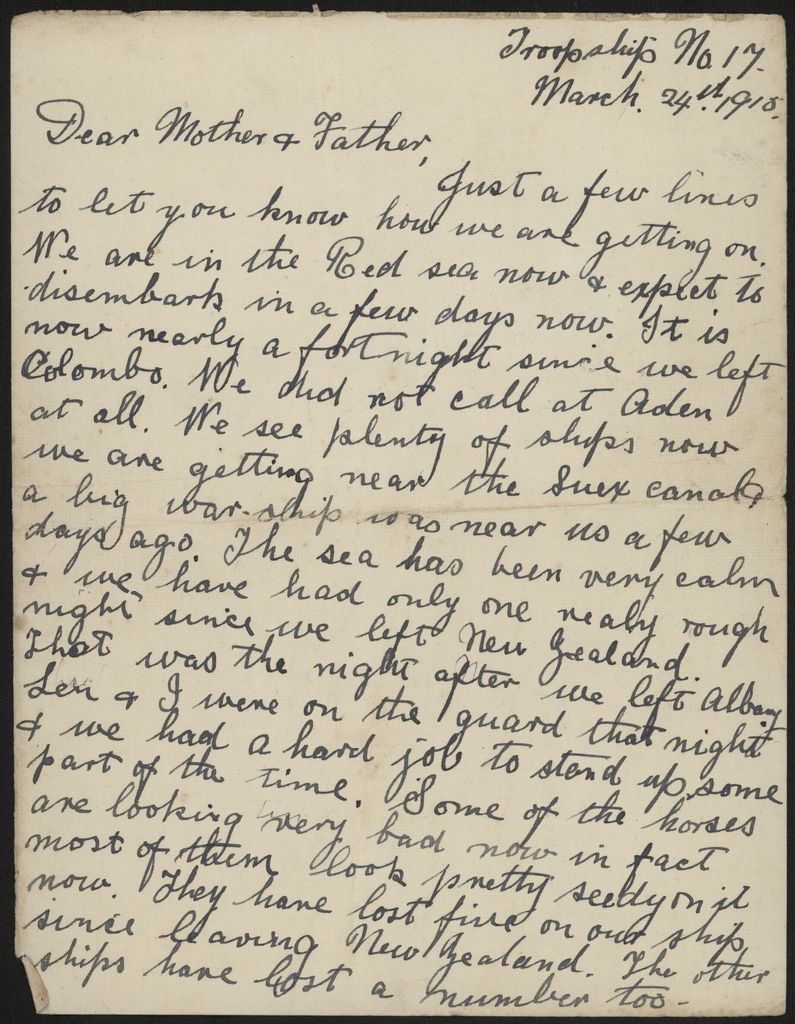 Troopship No 17.
March. 24st. 1915.
Dear Mother & Father,
Just a few lines
to let you know how we are getting on.
We are in the Red sea now & expect to
disembark in a few days now. It is
now nearly a fortnight since we left
Colombo. We did not call at Aden
at all. We see plenty of ships now
we are getting near the Suex canal,
a big war-ship was near us a few
days ago. The sea has been very calm
& we have had only one realy rough
night since we left New Zealand.
That was the night after we left Albany
Len & I were on the guard that night
& we had a hard job to stand up, some
part of the time. Some of the horses
are looking very bad now in fact
most of them look pretty seedy on it
now. They have lost five on our ship
since leaving New Zealand. The other
ships have lost a number too-